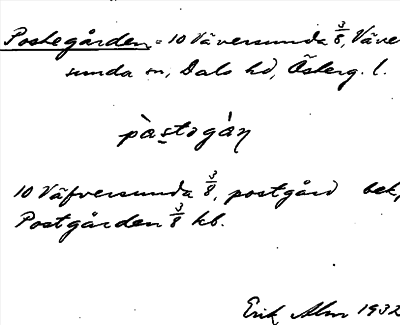 Postegården = 10 Väversunda 3/8, Väver-
sunda sn, Dals hd, Österg. l.
pàstogàɳ
10 Väfversunda 3/8, postgård bek,
Postgården 3/8 kb.
Erik Alm 1932